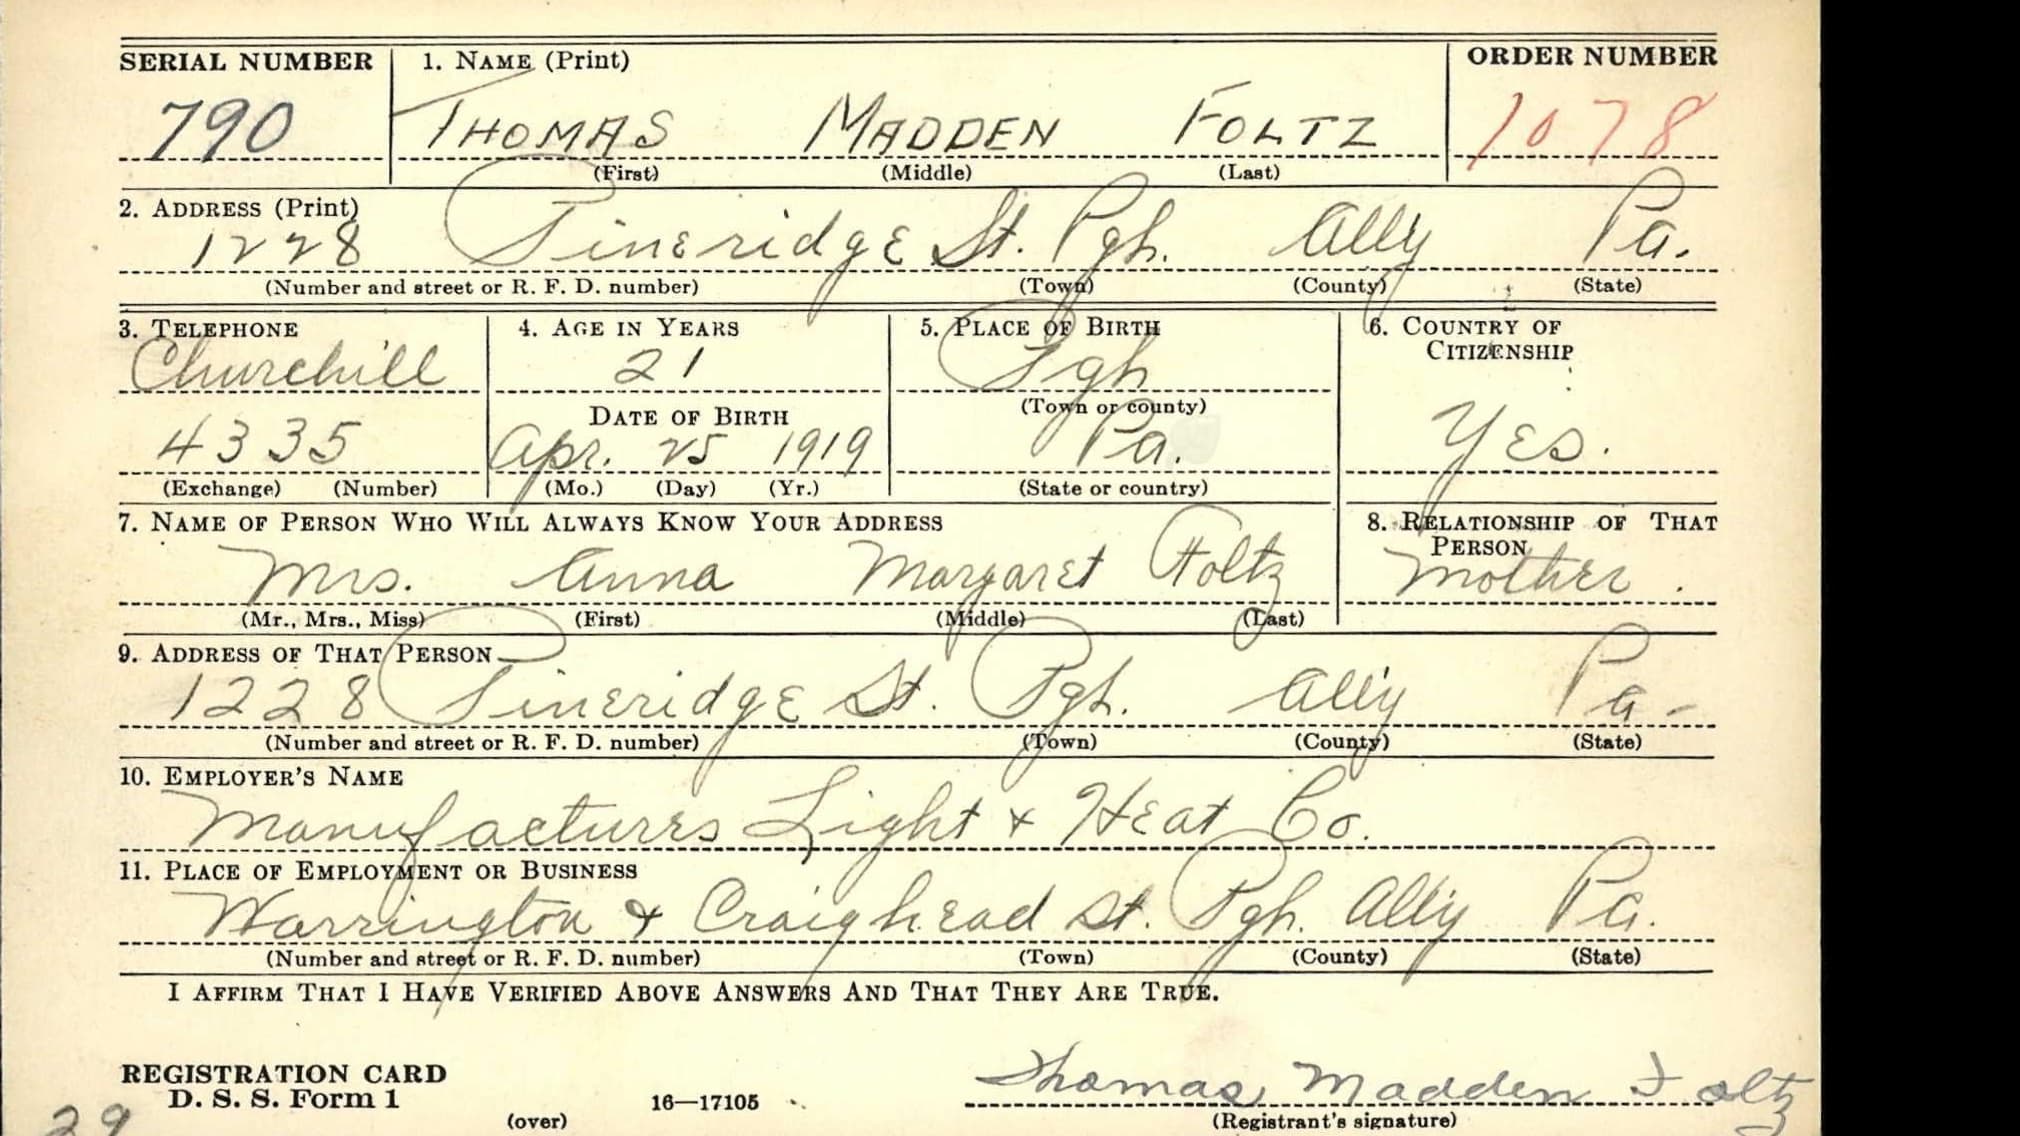 SERIAL NUMBER 1. NAME (Print) ORDER NUMBER
790 THOMAS MADDEN FOLTZ 1078
(First) (Middle) (Last)
2. ADDRESS (Print)
1228 Pineridge St. Pgh. Ally Pa.
(Number and street or R. F. D. number) (Town) (County) (State)
3. TELEPHONE 4. AGE IN YEARS 5. PLACE OF BIRTH 6. COUNTRY OF
CITIZENSHIP
Churchill 21 Pgh
DATE OF BIRTH (Town or county)
4335 Apr. 25 1919 Pa. Yes.
(Exchange) (Number) (Mo.) (Day) (Yr.) (State or country)
7. NAME OF PERSON WHO WILL ALWAYS KNOW YOUR ADDRESS 8. RELATIONSHIP OF THAT
PERSON
Mrs. Anna Margaret Foltz Mother.
(Mr., Mrs., Miss) (First) (Middle) (Last)
9. ADDRESS OF THAT PERSON
1228 Pineridge St. Pgh. Ally Pa-
(Number and street or R. F. D. number) (Town) (County) (State)
10. EMPLOYER'S NAME
Manufacturers Light & Heat Co.
11. PLACE OF EMPLOYMENT OR BUSINESS
Warrington & Craighead St. Pgh. Ally Pa.
(Number and street or R. F. D. number) (Town) (County) (State)
I AFFIRM THAT I HAVE VERIFIED ABOVE ANSWERS AND THAT THEY ARE TRUE.
REGISTRATION CARD
D. S. S. Form 1 16—17105 Thomas Madden Foltz
29 (over) (Registrant's signature)